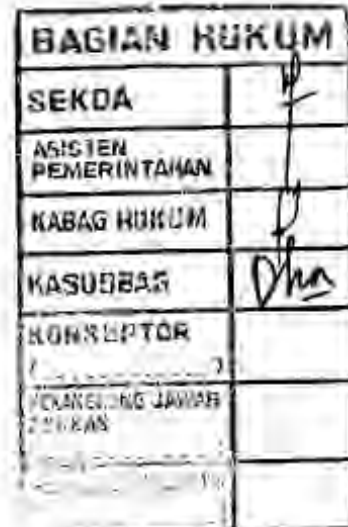 BAGIAN HUKUM
SEKDA
ASISTEN
PEMERINTAHAN
KABAG HUKUM
KASUBBAG
KONSEPTOR
JAWAB